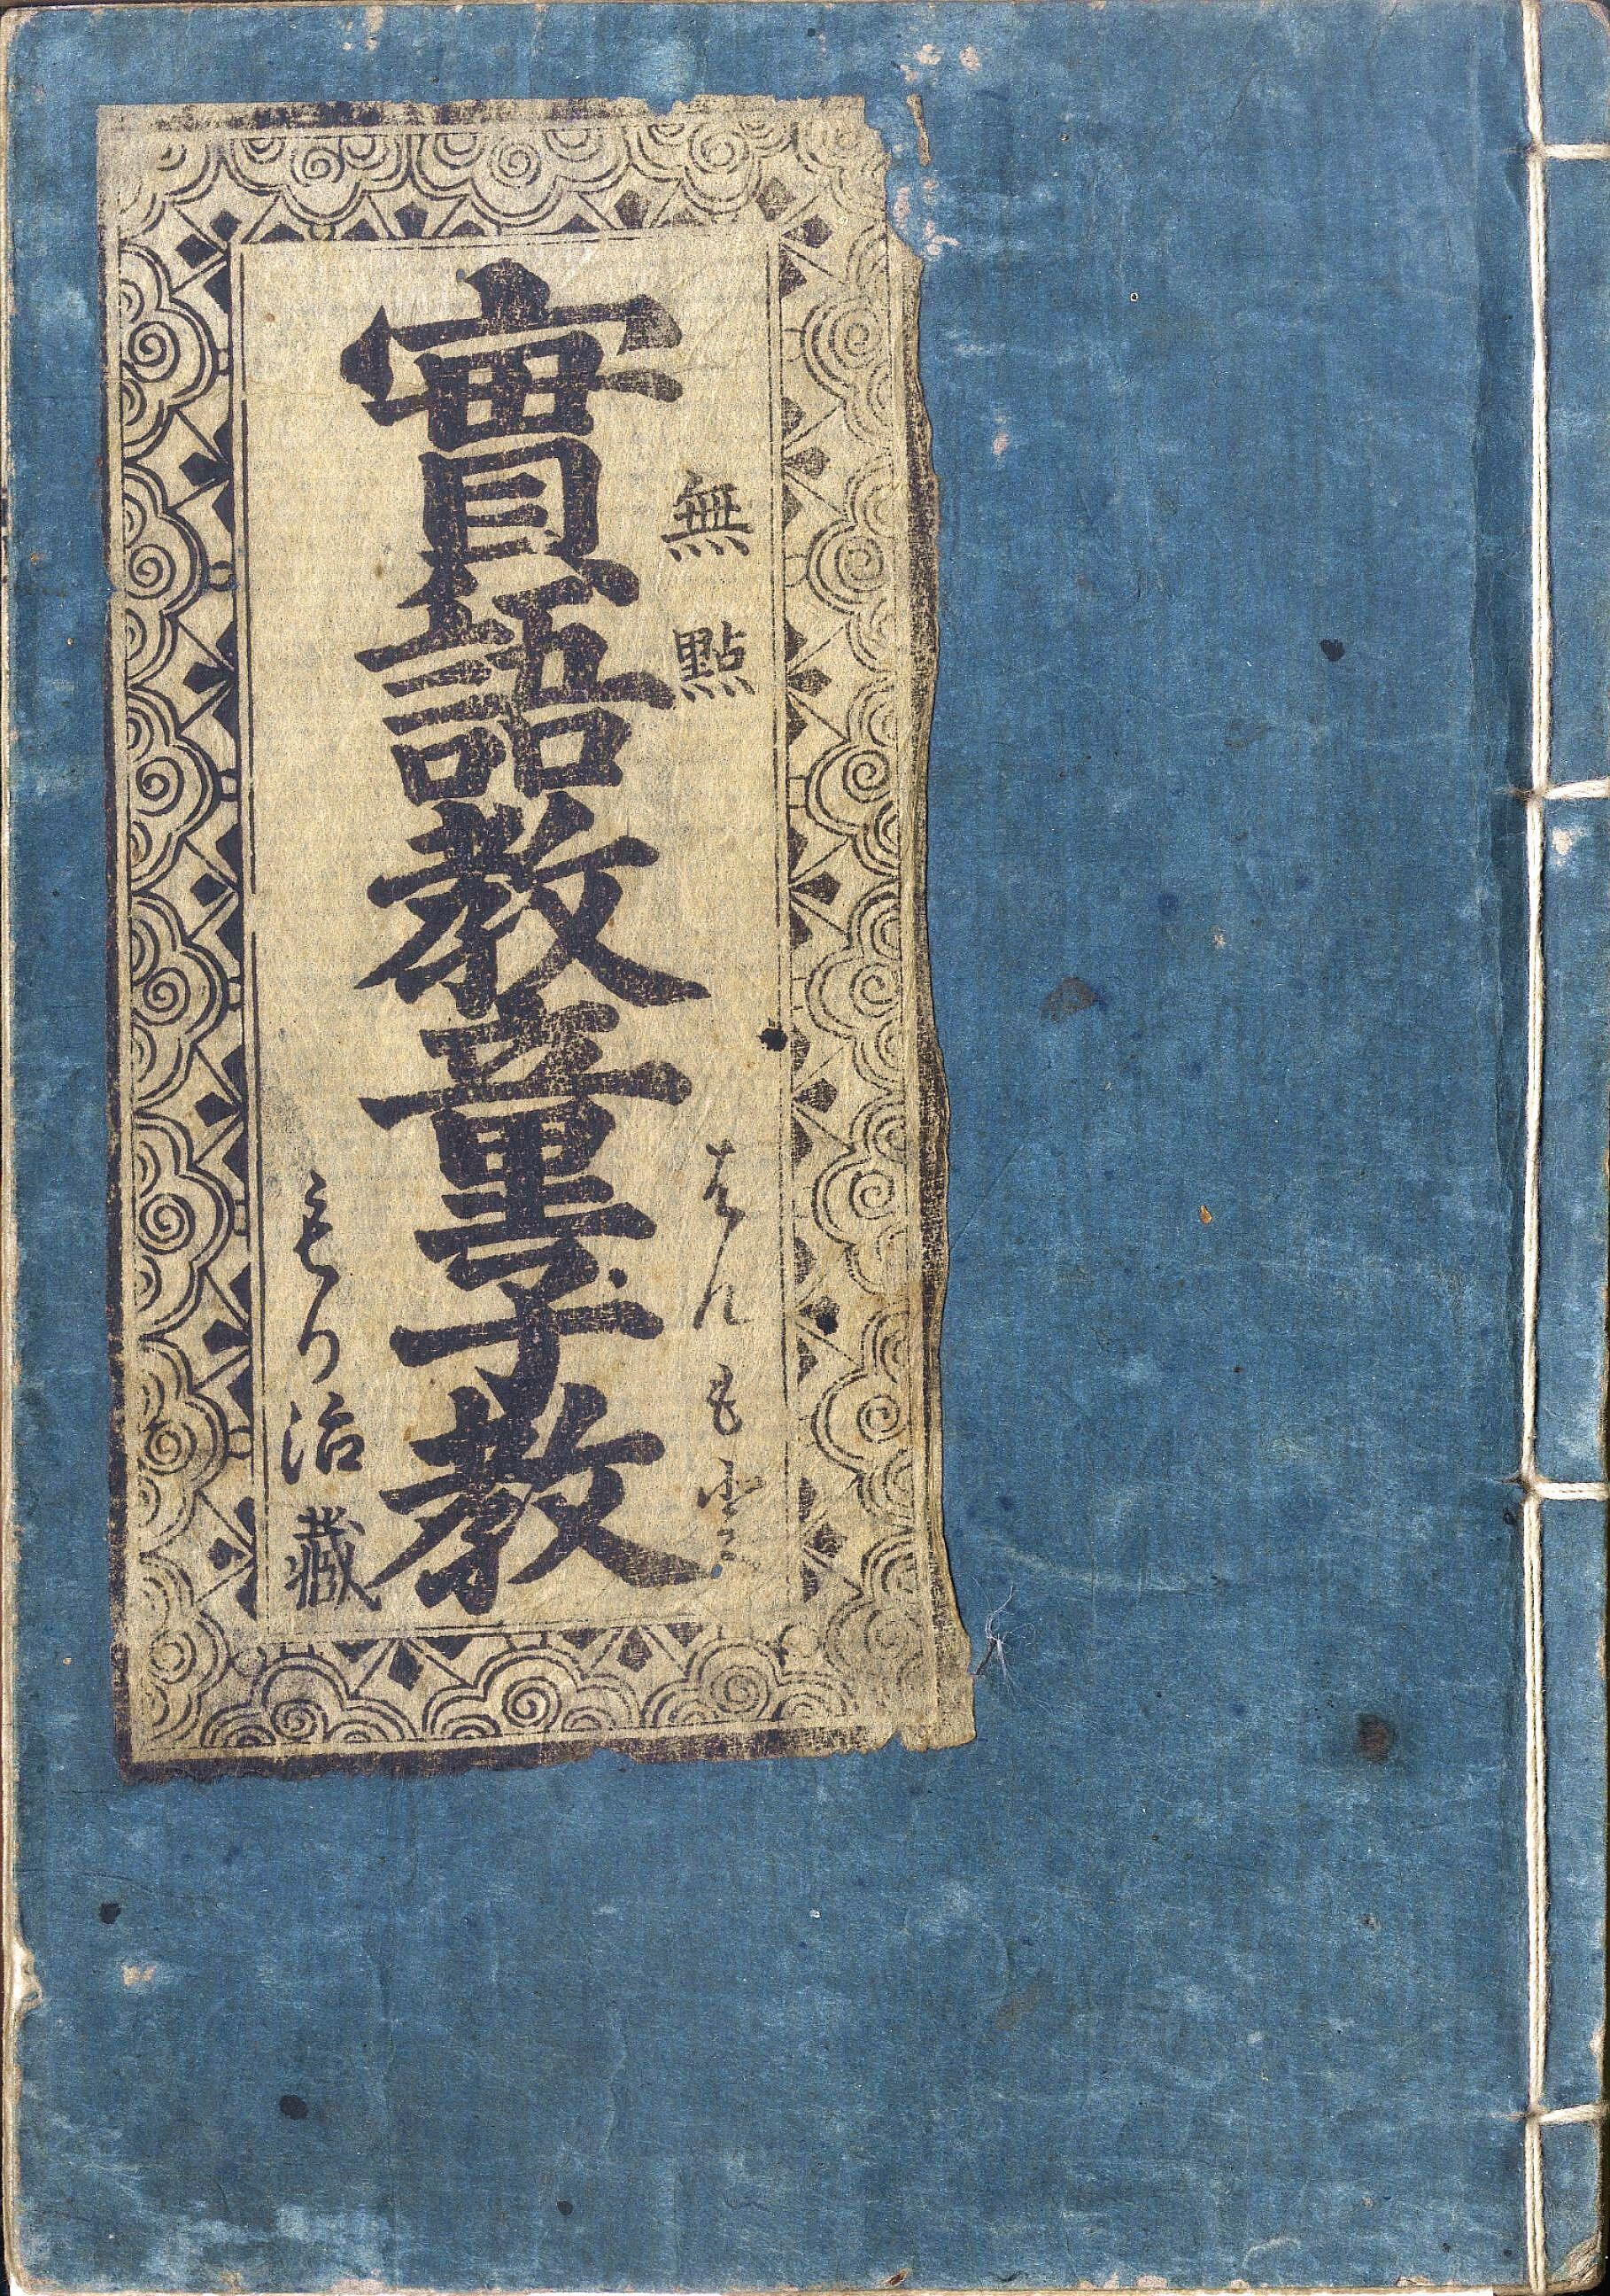 無點
實語教童子教
もり治藏